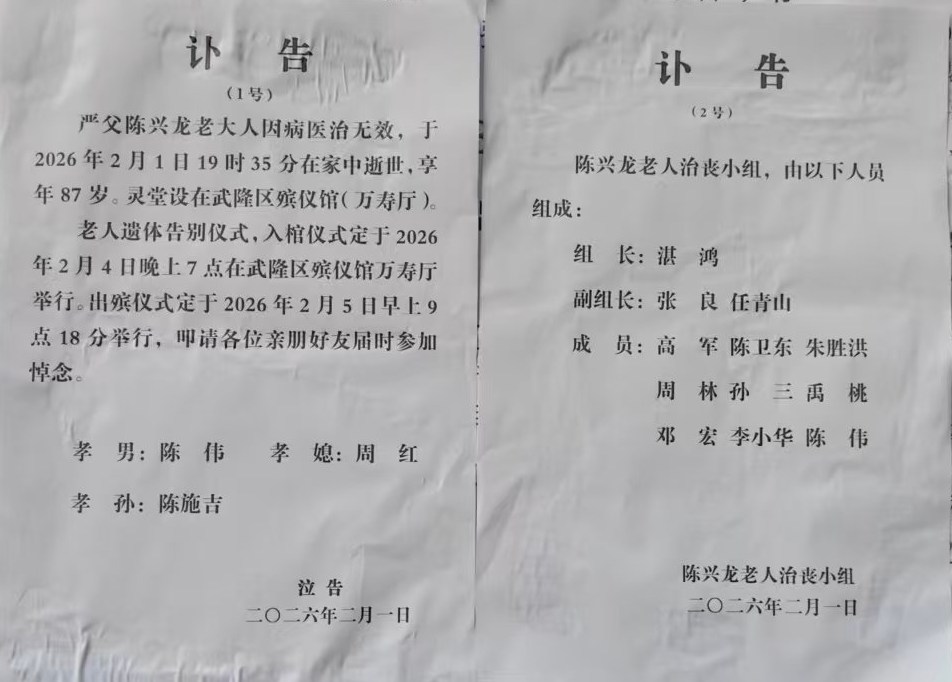 讣 告
（1号）
严父陈兴龙老大人因病医治无效，于
2026年2月1日19时35分在家中逝世，享
年87岁。灵堂设在武隆区殡仪馆（万寿厅）。
老人遗体告别仪式，入棺仪式定于2026
年2月4日晚上7点在武隆区殡仪馆万寿厅
举行。出殡仪式定于2026年2月5日早上9
点18分举行，叩请各位亲朋好友届时参加
悼念。
孝 男：陈 伟 孝 媳：周 红
孝 孙：陈施吉
泣告
二〇二六年二月一日
讣 告
（2号）
陈兴龙老人治丧小组，由以下人员
组成：
组 长：湛 鸿
副组长：张 良 任青山
成 员：高 军 陈卫东 朱胜洪
周 林 孙 三 禹 桃
邓 宏 李小华 陈 伟
陈兴龙老人治丧小组
二〇二六年二月一日